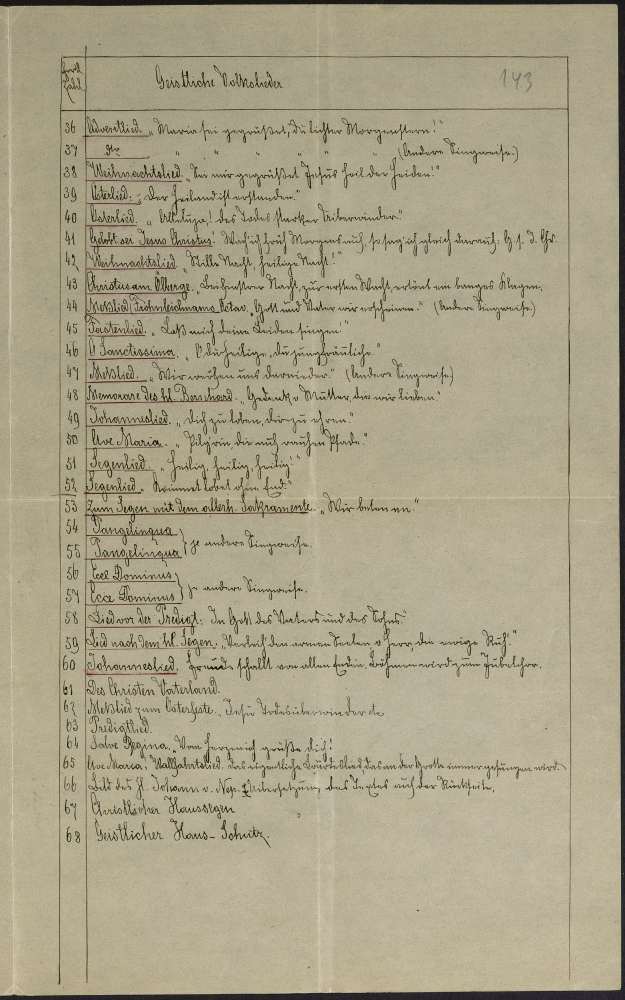 Geistliche Volkslieder
143
36 Adventlied. „Maria sei gegrüßet, du lichter Morgenstern!"
37 dto „ „ „ „ „ (Andere Singweise.)
38 Weihnachtslied. „Sei mir gegrüßet Jesus Heil der Heiden!"
39 Osterlied: „Der Heiland ist erstanden."
40 Osterlied. „Alleluja! des Todes starker Überwinder."
41 Gelobt sei Jesus Christus! Wach ich früh Morgens auf, so sag' ich gleich darauf: G. s. J. Chr.
42 Weihnachtslied. „Stille Nacht, heilige Nacht!"
43 Christus am Ölberge. Nacht, zur ersten Wacht, ertönt ein banges Klagen.
44 Meßlied, Frohnleichnams Octav. Gott und Vater wir erscheinen." (Andere Singweise.)
45 Fastenlied. „Laß mich deine Leiden singen!"
46 O Sanctissima. „O du heilige, du jungfräuliche."
47 Meßlied. „Wir werfen uns darnieder." (Andere Singweise.)
48 Memorare des hl. Bernhard. „Gedenk o Mutter, die wir lieben."
49 Johanneslied. „Dich zu loben, dir zu ehren."
50 Ave Maria. „Pilgrin, die auf rauhen Pfade."
51 Segenlied. „Heilig, heilig, heilig!"
52 Segenlied. Kommet lobet ohne End."
53 Zum Segen mit dem allerh. Sakramente. „Wir beten an"
54 Pangelingua
55 Pangelingua } je andere Singweise.
56 Ecce Dominus
57 Ecce Dominus } je andere Singweise.
58 Lied vor der Predigt: In Gott des Vaters und des Sohns.
59 Lied nach dem hl. Segen. „Verleih' den armen Seelen o Herr, die ewige Ruh."
60 Johanneslied. Freude schallt von allen Enden. Böhmen wird zum Jubelchor.
61 Des Christen Vaterland.
62 Meßlied zum Osterfeste. Jesu Todesüberwinder etc
63 Predigtlied.
64 Salve Regina. „Vom Herzen ich grüße dich!
65 Ave Maria, Wallfahrtslied. Das eigentliche Lourdeslied, das an der Grotte immer gesungen wird.
66 Bild des Hl. Johann v. Nep. Übersetzung des Textes auf der Rückseite.
67 Christlicher Haussegen
68 Geistlicher Haus-Schutz.